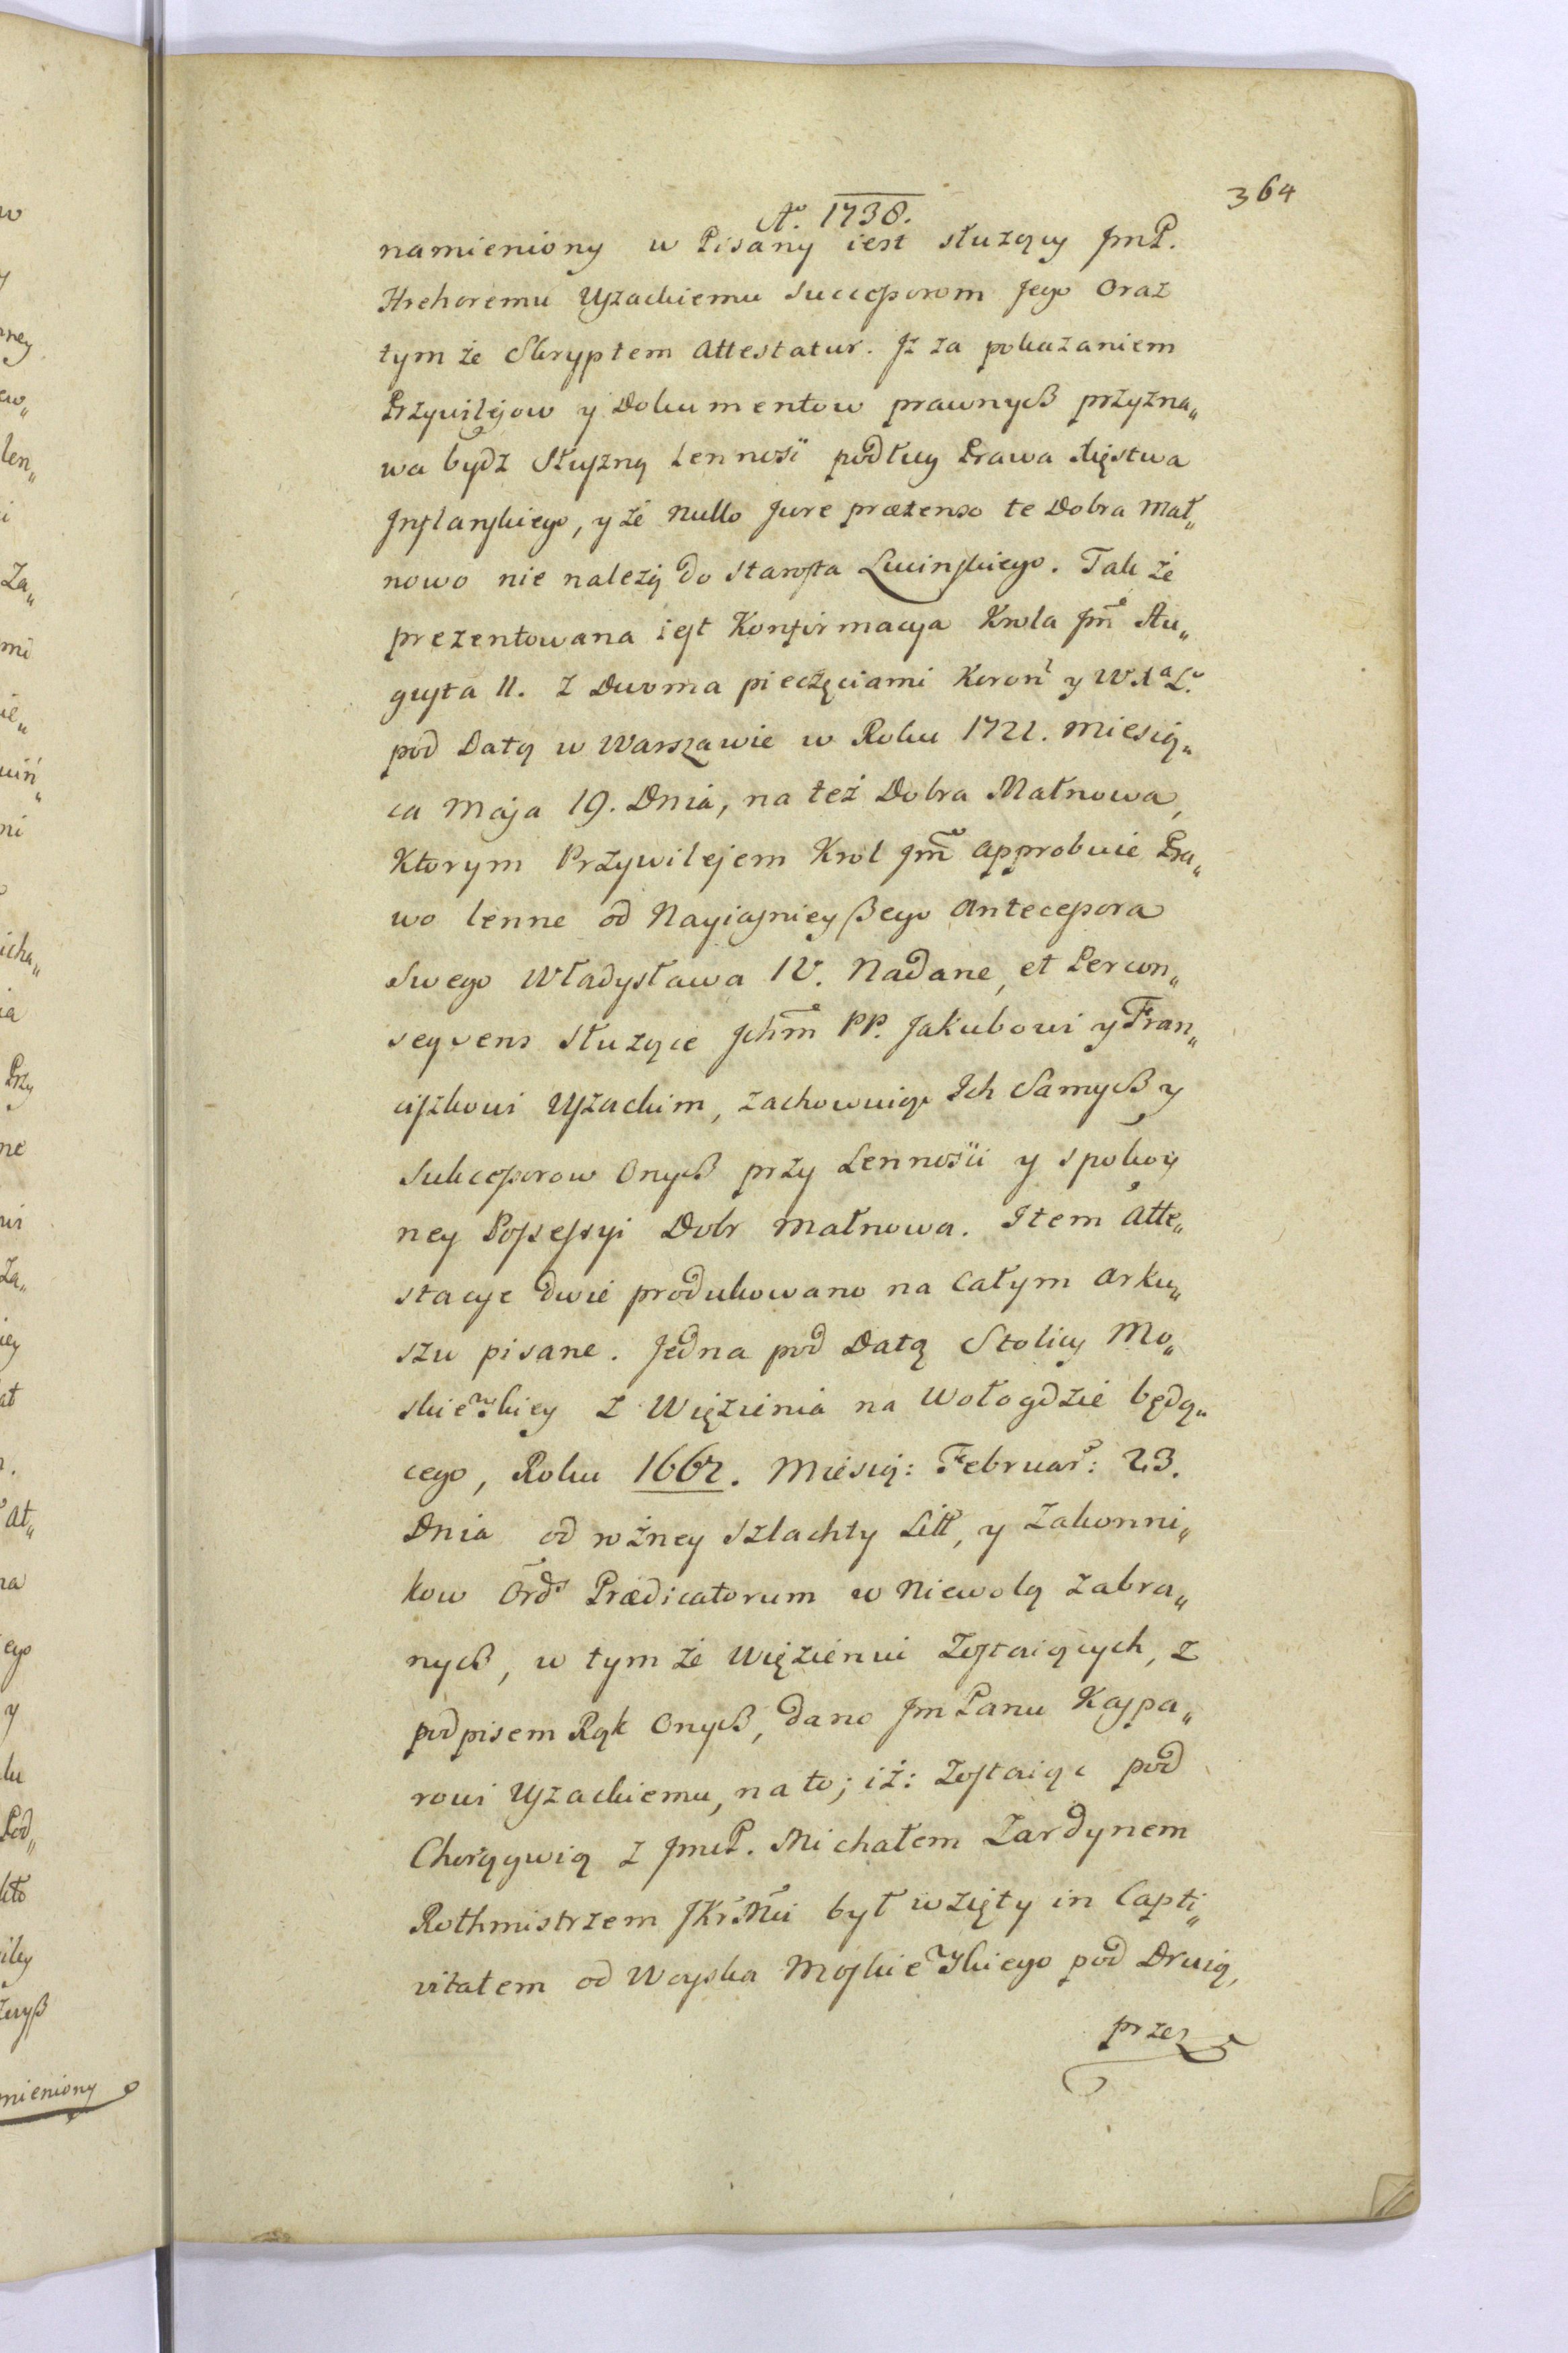 364
Aº. 1738.
namieniony w Pisany iest służący JmP.
Hrehoremu Uszackiemu Successorom Jego Oraz
tym że Skryptem Attestatur. Jż za pokazaniem
Przywilejow y Dokumentow prawnych przyzna„
wa bydz Słuszną Lenność podług Prawa Xięstwa
Inflanskiego, y że Nullo Jure prætenso te Dobra Mał„
nowo nie należą do Starosta Lucinskiego. Tak że
prezentowana iest Konfirmacya Krola Jmẽ Au„
gusta II. z Dwoma pieczęciami Koronˡ y W.XᵃLº.
pod Datą w Warszawie w Roku 1721. Miesią„
ca Maja 19. Dnia, na też Dobra Małnowa,
Ktorym Przywilejem Krol Jmẽ approbuie Pra„
wo lenne od Nayiasnieyszego Antecessora
Swego Władysława IV. Nadane, et Percon„
sequens Służące Jchmẽ PP. Jakubowi y Fran„
ciszkowi Uszackim, zachowuiąc Ich Samych y
Sukcessorow Onych przy Lennosci y spokoy
ney Possessyi Dobr Małnowa. Item Atte„
stacye dwie produkowano na Całym Arku„
szu pisane. Jedna pod Datą Stolicy Mo„
skiewskiey z Więzienia na Wołogdzie będą„
cego, Roku 1662. Miesią: Februar: 23.
Dnia od rożney Szlachty Litt, y Zakonni„
kow Ordˢ Prædicatorum w Niewolą zabra„
nych, w tym że Więzieniu Zostaiących, z
podpisem Rąk Onych, dano Jm Panu Kaspa„
rowi Uszackiemu, na to; iż: Zostaiąc pod
Chorągwią z JmcP. Michałem Zardynem
Rothmistrzem JKrMci był wzięty in Capti„
vitatem od Woyska Moskiewskiego pod Druią,
przez